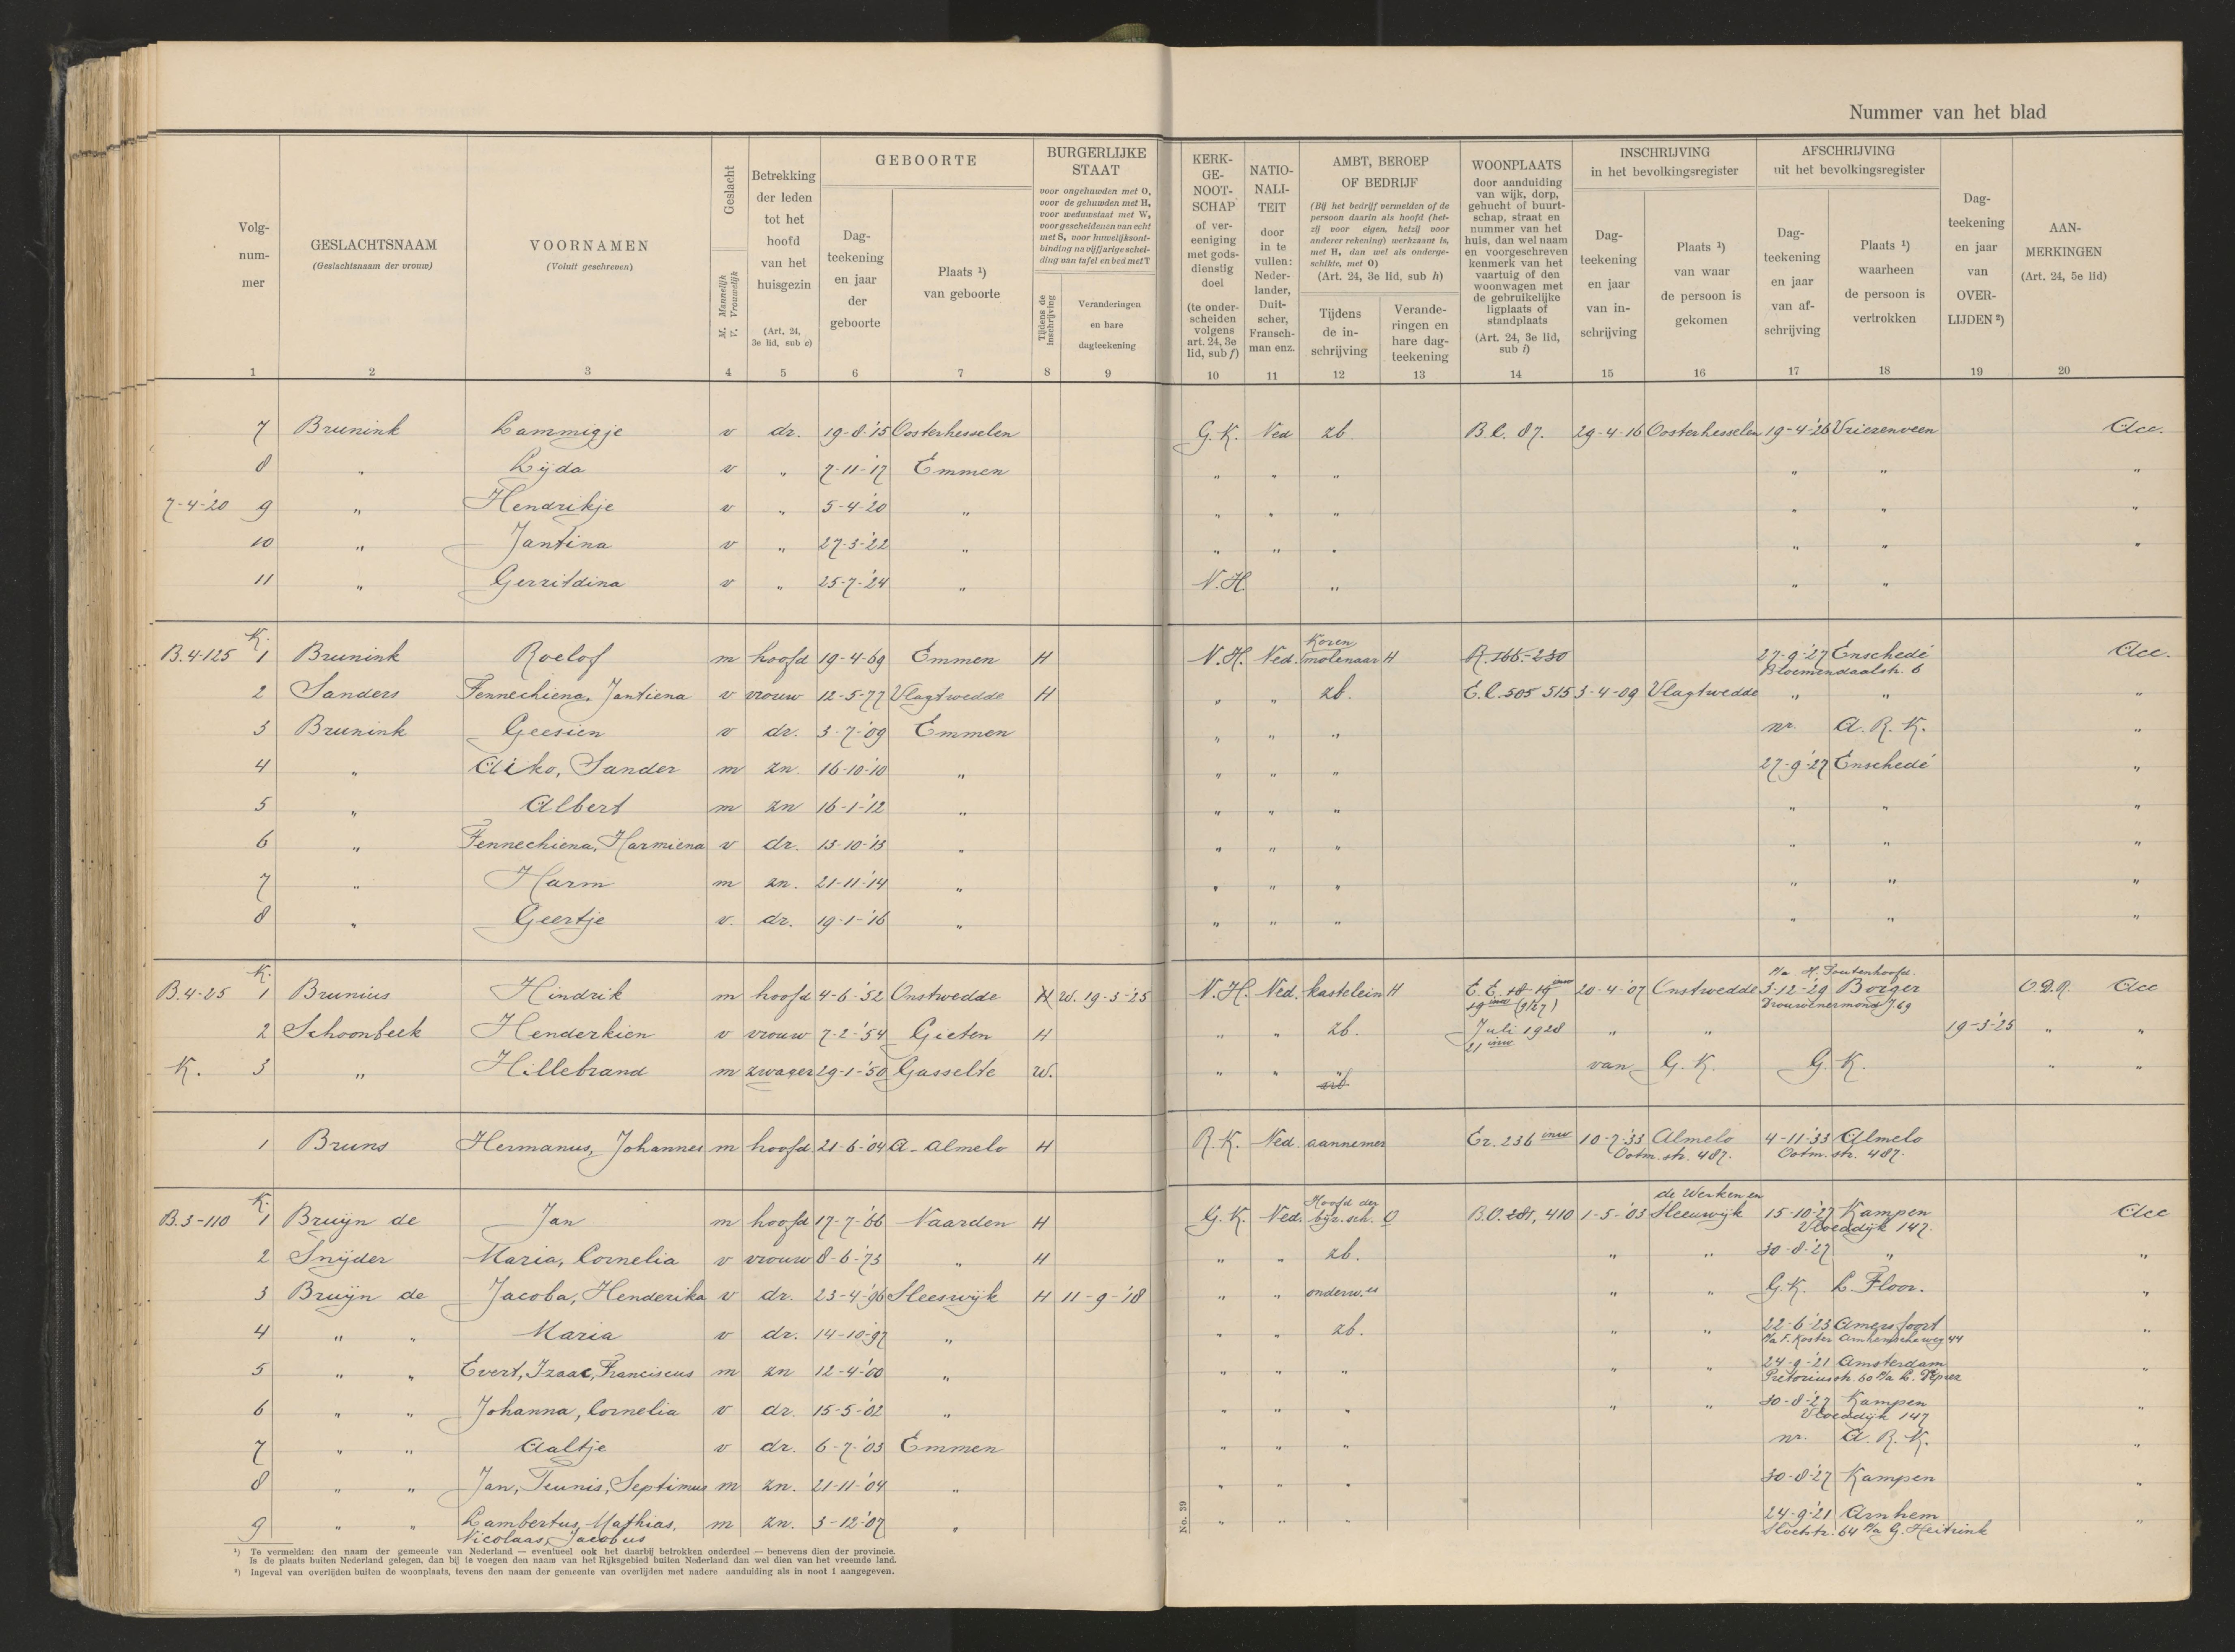 Nummer van het blad
Volg-nummer GESLACHTSNAAM (Geslachtsnaam der vrouw) VOORNAMEN (Voluit geschreven) Geslacht M. Mannelijk V. Vrouwelijk Betrekking der leden tot het hoofd van het huisgezin (Art. 24, 3e lid, sub c) GEBOORTE Dag-teekening en jaar der geboorte Plaats ¹) van geboorte BURGERLIJKE STAAT voor ongehuwden met O, voor de gehuwden met H, voor weduwstaat met W, voor gescheidenen van echt met S, voor huwelijksont-binding na vijfjarige schei-ding van tafel en bed met T Tijdens de inschrijving Veranderingen en hare dagteekening KERK-GE-NOOT-SCHAP of ver-eeniging met gods-dienstig doel (te onder-scheiden volgens art. 24, 3e lid, sub f) NATIO-NALI-TEIT door in te vullen: Neder-lander, Duit-scher, Fransch-man enz. AMBT, BEROEP OF BEDRIJF (Bij het bedrijf vermelden of de persoon daarin als hoofd (het-zij voor eigen, hetzij voor anderer rekening) werkzaam is, met H, dan wel als onderge-schikte, met O) (Art. 24, 3e lid, sub h) Tijdens de in-schrijving Verande-ringen en hare dag-teekening WOONPLAATS door aanduiding van wijk, dorp, gehucht of buurt-schap, straat en nummer van het huis, dan wel naam en voorgeschreven kenmerk van het vaartuig of den woonwagen met de gebruikelijke ligplaats of standplaats (Art. 24, 3e lid, sub i) INSCHRIJVING in het bevolkingsregister Dag-teekening en jaar van in-schrijving Plaats ¹) van waar de persoon is gekomen AFSCHRIJVING uit het bevolkingsregister Dag-teekening en jaar van af-schrijving Plaats ¹) waarheen de persoon is vertrokken Dag-teekening en jaar van OVER-LIJDEN ²) AAN-MERKINGEN (Art. 24, 5e lid)
1 2 3 4 5 6 7 8 9 10 11 12 13 14 15 16 17 18 19 20
7 Brunink Lammigje v dr. 19-8-'15 Oosterhesselen G.K. Ned zb. B.l. 87. 29-4-16 Oosterhesselen 19-4-'26 Vriezenveen Acc.
8 " Lijda v " 7-11-'17 Emmen " " " " " "
7-4-'20 9 " Hendrikje v " 5-4-'20 " " " " " " "
10 " Jantina v " 27-3-'22 " " " " " " "
11 " Gerritdina v " 25-7-'24 " N.H. " " "
K. Koren
B.4-125 1 Brunink Roelof m hoofd 19-4-'69 Emmen H N.H. Ned. molenaar H A. 166.-230 27-9-'27 Enschedé Acc.
Bloemendaalstr. 6
2 Sanders Fennechiena, Jantiena v vrouw 12-5-77 Vlagtwedde H " " zb. E.l. 505 515 3-4-09 Vlagtwedde " " "
3 Brunink Geesien v dr. 3-7-'09 Emmen " " " nr. A.R.K. "
4 " Aiko, Sander m zn. 16-10-'10 " " " " 27-9-'27 Enschedé "
5 " Albert m zn 16-1-'12 " " " " " " "
6 " Fennechiena, Harmiena v dr. 13-10-'13 " " " " " " "
7 " Harm m zn. 21-11-'14 " " " " " " "
8 " Geertje v. dr. 19-1-'16 " " " " " " "
K. p/a H. Soutenhoofd.
B.4-25 1 Brunius Hindrik m hoofd 4-6-'52 Onstwedde H W. 19-3-'25 N.H. Ned. kastelein H E.E. 18-19 inw 20-4-'07 Onstwedde 3-12-'29 Borger O.D.R. Acc
19 inw (9/27) Drouwenermond J69
2 Schoonbeek Henderkien v vrouw 7-2-'54 Gieten H " " zb. Juli 1928 " " 19-3-'25 " "
21 inw
K. 3 " Hillebrand m zwager 29-1-'50 Gasselte W. " " " van G.K. G.K. " "
arb
1 Bruns Hermanus, Johannes m hoofd 21-6-'04 A-Almelo H R.K. Ned. aannemer Er. 236 inw 10-7-'33 Almelo 4-11-'33 Almelo
Ootm. str. 487. Ootm. str. 487.
K. Hoofd der de Werken en
B.3-110 1 Bruÿn de Jan m hoofd 17-7-'66 Naarden H G.K. Ned. bijz. sch. O B.O. 281, 410 1-5-'03 Sleeuwijk 15-10-'27 Kampen Acc
Vloeddijk 147.
2 Snijder Maria, Cornelia v vrouw 8-6-'73 " H " " zb. " " 30-8-'27 " "
3 Bruÿn de Jacoba, Henderika v dr. 23-4-'96 Sleeswijk H 11-9-'18 " " onderw.es " " G.K. L. Floor. "
4 " " Maria v dr. 14-10-'97 " " " zb. " " 22-6-'23 Amersfoort "
p/a F. Koster Arnhemscheweg 44
5 " " Evert, Izaac, Franciscus m zn 12-4-'00 " " " " " " 24-9-'21 Amsterdam "
Pretoriusstr. 60 p/a L.
6 " " Johanna, Cornelia v dr. 15-5-'02 " " " " " " 30-8-'27 Kampen "
Vloeddijk 147
7 " " Aaltje v dr. 6-7-'03 Emmen " " " nr. A.R.K. "
8 " " Jan, Teunis, Septimus m zn. 21-11-'04 " " " " 30-8-'27 Kampen "
9 " " Lambertus, Mathias, m zn. 3-12-'07 " " " " 24-9-'21 Arnhem "
Nicolaas, Jacobus 64 p/a G. Heitink
No. 39
¹) Te vermelden: den naam der gemeente van Nederland — eventueel ook het daarbij betrokken onderdeel — benevens dien der provincie.
Is de plaats buiten Nederland gelegen, dan bij te voegen den naam van het Rijksgebied buiten Nederland dan wel dien van het vreemde land.
²) Ingeval van overlijden buiten de woonplaats, tevens den naam der gemeente van overlijden met nadere aanduiding als in noot 1 aangegeven.